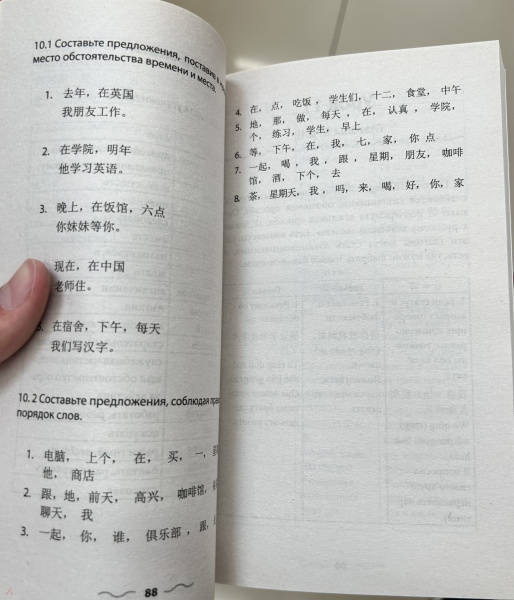 10.1 Составьте предложения, поставив в
место обстоятельства времени и места.
1. 去年，在英国
我朋友工作。
2. 在学院，明年
他学习英语。
3. 晚上，在饭馆，六点
你妹妹等你。
现在，在中国
老师住。
在宿舍，下午，每天
我们写汉字。
10. 2 Составьте предложения, соблюдая
порядок слов.
1. 电脑， 上个， 在， 买， 一，
他，商店
2. 跟，地，前天， 高兴， 咖啡馆，
聊天， 我
3. 一起， 你， 谁， 俱乐部 ， 跟，
88
4. 在， 点， 吃饭 ， 学生们， 十二， 食堂， 中午
5. 地， 那， 做， 每天 ， 在， 认真 ， 学院，
个， 练习， 学生， 早上
6. 等， 下午， 在， 我， 七， 家， 你 点
7. 一起， 喝 ， 我 ， 跟 ， 星期， 朋友， 咖啡
馆， 酒， 下个， 去
8. 茶，星期天，我 ，吗，来，喝，好，你，家